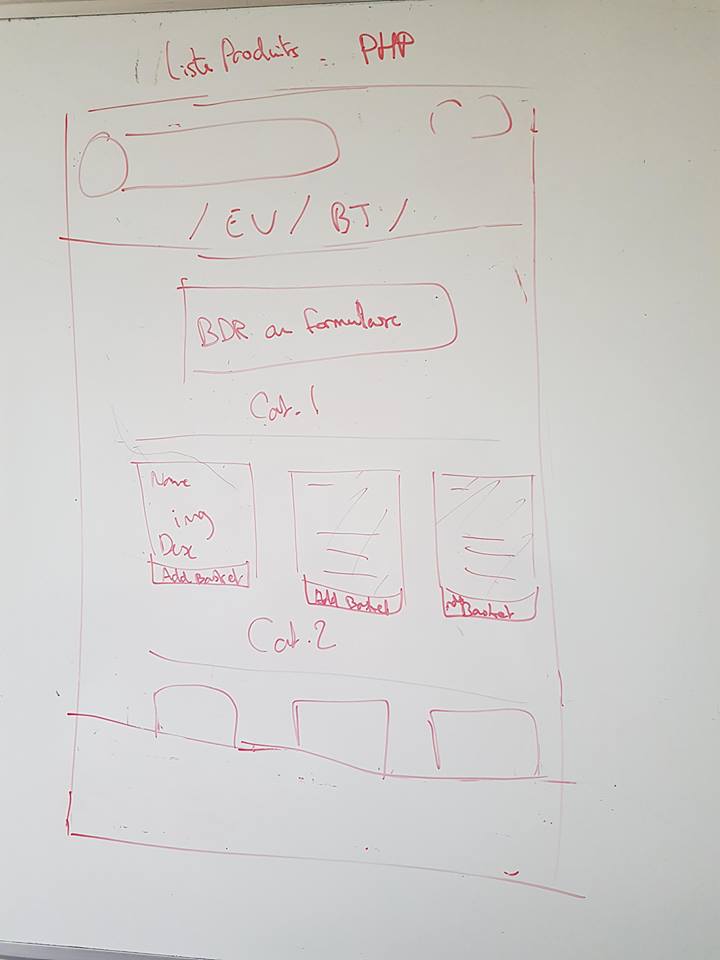 Liste Produits - PHP
/ EV / BT /
BDR ou formulaire
Cat. 1
Name
img
Add Basket
Add Basket
Add Basket
Cat. 2